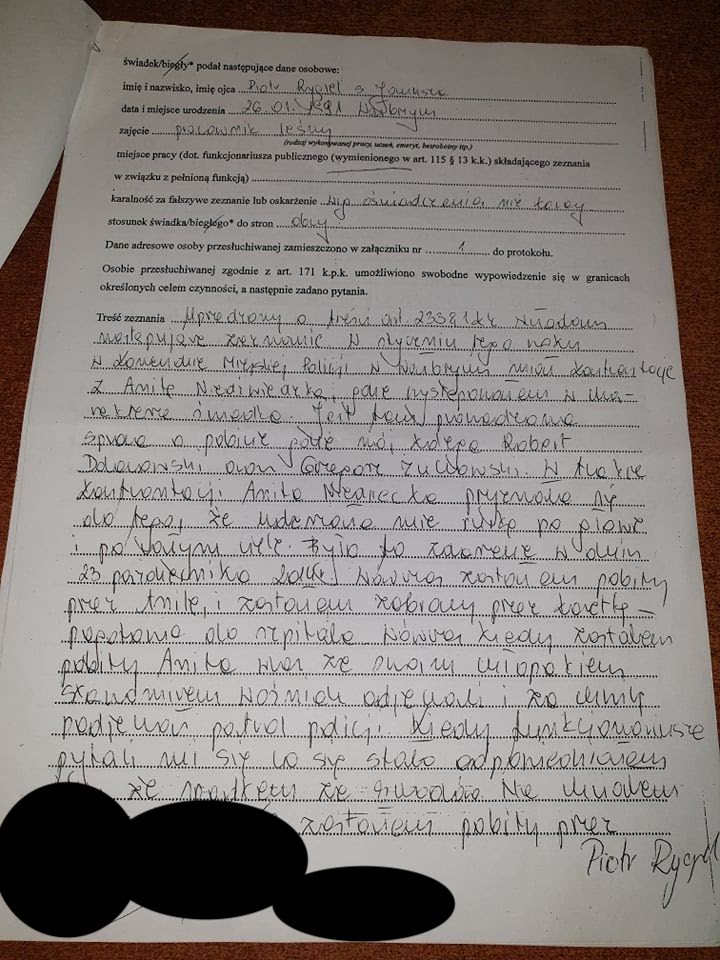 świadek/biegły* podał następujące dane osobowe:
imię i nazwisko, imię ojca Piotr Rygiel s. Janusza
data i miejsce urodzenia 26.01.1991 Wałbrzym
zajęcie pracownik leśny
(rodzaj wykonywanej pracy, uczeń, emeryt, bezrobotny itp.)
miejsce pracy (dot. funkcjonariusza publicznego (wymienionego w art. 115 § 13 k.k.) składającego zeznania
w związku z pełnioną funkcją)
karalność za fałszywe zeznanie lub oskarżenie wg oświadczenia nie karany
stosunek świadka/biegłego* do stron obcy
Dane adresowe osoby przesłuchiwanej zamieszczono w załączniku nr 1 do protokołu.
Osobie przesłuchiwanej zgodnie z art. 171 k.p.k. umożliwiono swobodne wypowiedzenie się w granicach
określonych celem czynności, a następnie zadano pytania.
Treść zeznania Uprzedzony o treści art. 233§1kk składam
następujące zeznanie W styczniu tego roku
w Komendzie Miejskiej Policji w Wałbrzychu miałem konfrontację
z Anitą gdzie występowałem w cha-
rakterze świadka. Jest tam prowadzona
sprawa o pobicie gdzie mój kolega Robert
oraz Grzegorz Żuchowski. W trakcie
konfrontacji Anita przyznała się
do tego, że uderzała mnie rurką po głowie
i po całym ciele. Było to zdarzenie w dniu
23 października wówczas zostałem pobity
przez Anitę, i zostałem zabrany przez karetkę
pogotowia do szpitala wówczas kiedy zostałem
pobity Anita wraz ze swoim chłopakiem
odjechali i za chwilę
podjechał patrol policji. Kiedy funkcjonariusze
pytali mi się co się stało odpowiedziałem
że spadłem ze schodów. Nie chciałem
zostałem pobity przez
Piotr Rygiel